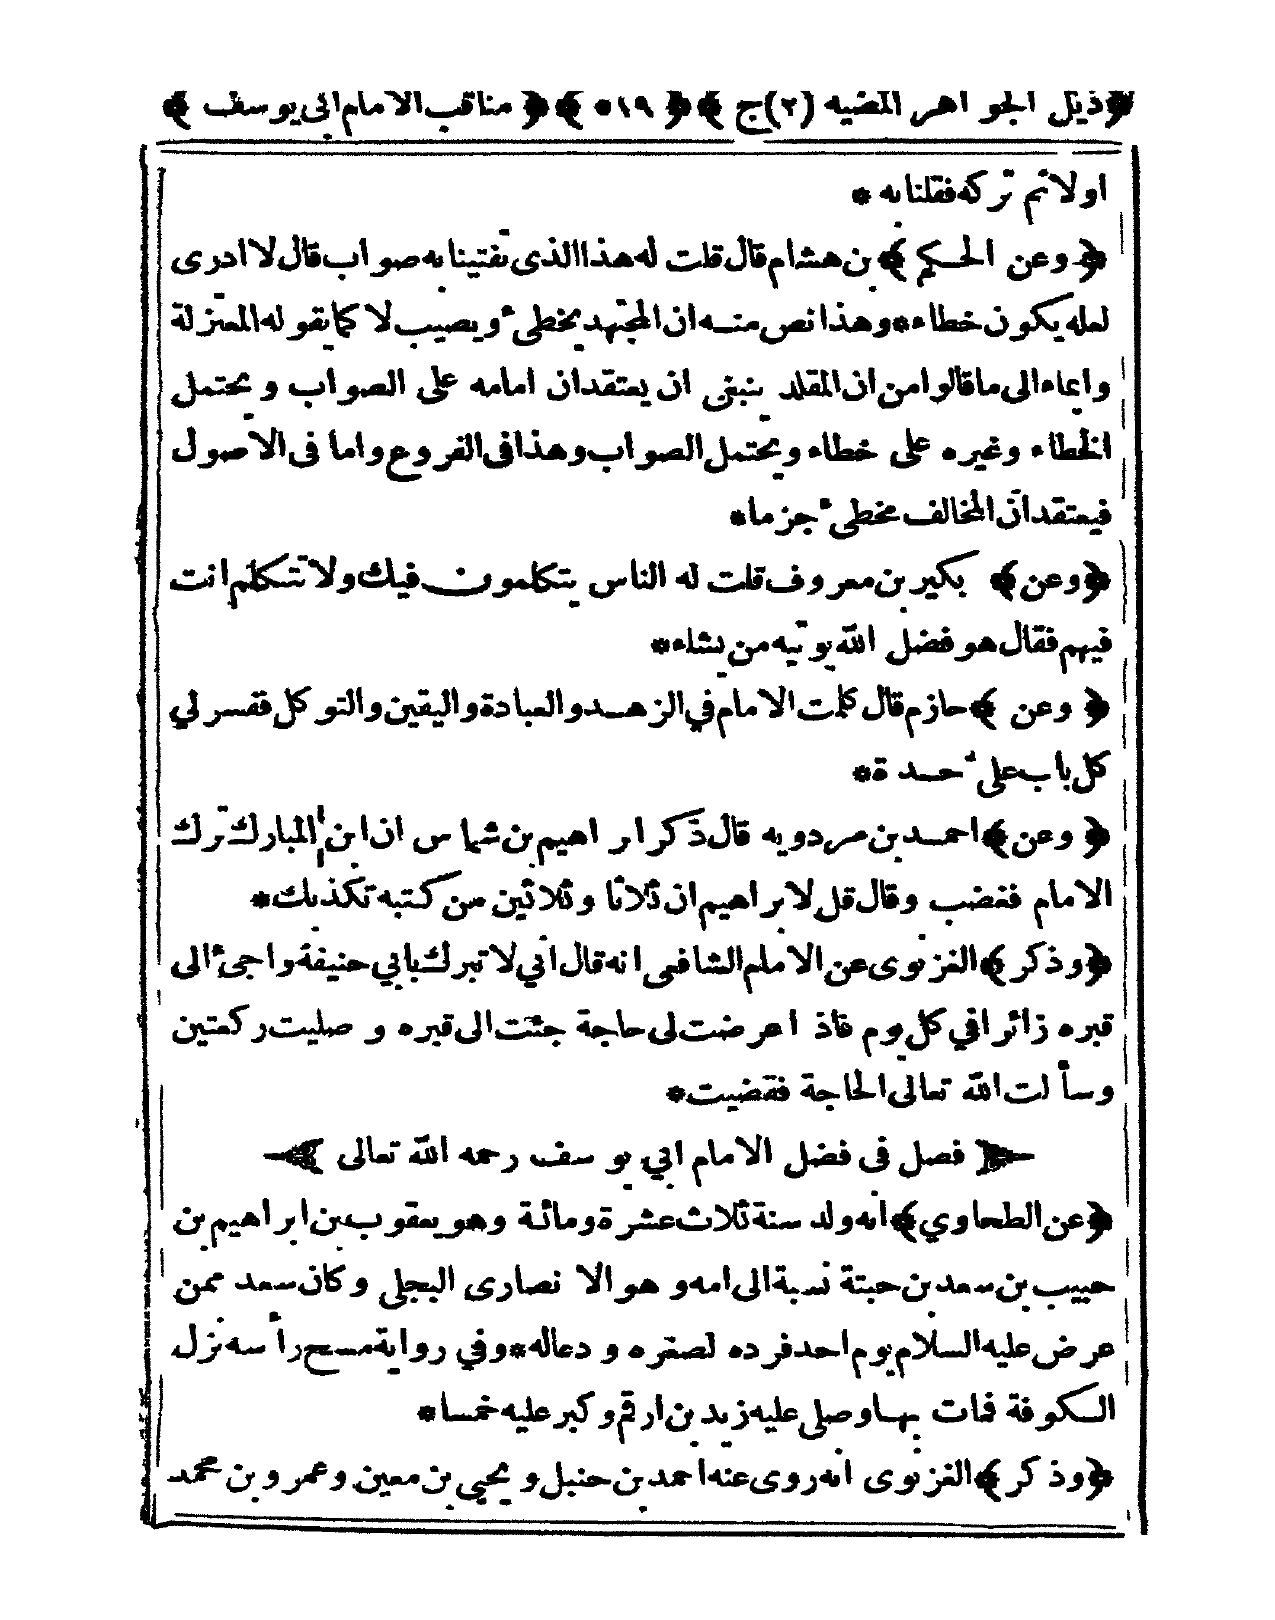 ﴿ذيل الجواهر المضيه (٢)ج﴾ ﴿٥١٩﴾ ﴿مناقب الامام ابى يوسف﴾
اولا ثم تركه فقلنا به *
﴿وعن الحكم﴾ بن هشام قال قلت له هذا الذى تفتينا به صواب قال لا ادرى
لعله يكون خطاء * وهذا نص منه ان المجتهد يخطئ ويصيب لا كما يقوله المعتزلة
وايماء الى ما قالوا من ان المقلد ينبغى ان يعتقد ان امامه على الصواب و يحتمل
الخطاء وغيره على خطاء ويحتمل الصواب وهذا فى الفروع واما فى الاصول
فيعتقد ان المخالف مخطئ جزما *
﴿وعن﴾ بكير بن معروف قلت له الناس يتكلمون فيك ولا تتكلم انت
فيهم فقال هو فضل الله يؤتيه من يشاء *
﴿وعن﴾ حازم قال كلمت الامام في الزهد والعبادة واليقين والتوكل ففسر لي
كل باب على حدة *
﴿وعن﴾ احمد بن مردويه قال ذكر ابراهيم بن شماس ان ابن المبارك ترك
الامام فغضب وقال قل لابراهيم ان ثلاثا وثلاثين من كتبه تكذبك *
﴿وذكر﴾ الغزنوى عن الامام الشافعى انه قال اني لا تبرك بابي حنيفة واجئ الى
قبره زائرا في كل يوم فاذا عرضت لى حاجة جئت الى قبره و صليت ركعتين
وسألت الله تعالى الحاجة فقضيت *
﴿فصل فى فضل الامام ابي يوسف رحمه الله تعالى﴾
﴿عن الطحاوي﴾ انه ولد سنة ثلاث عشرة ومائة وهو يعقوب بن ابراهيم بن
حبيب بن سعد بن حبتة نسبة الى امه و هو الا نصارى البجلى وكان سعد ممن
عرض عليه السلام يوم احد فرده لصغره و دعاله * وفي رواية مسح رأسه نزل
الكوفة فمات بها وصلى عليه زيد بن ارقم وكبر عليه خمسا *
﴿وذكر﴾ الغزنوى انه روى عنه احمد بن حنبل و يحيى بن معين وعمرو بن محمد